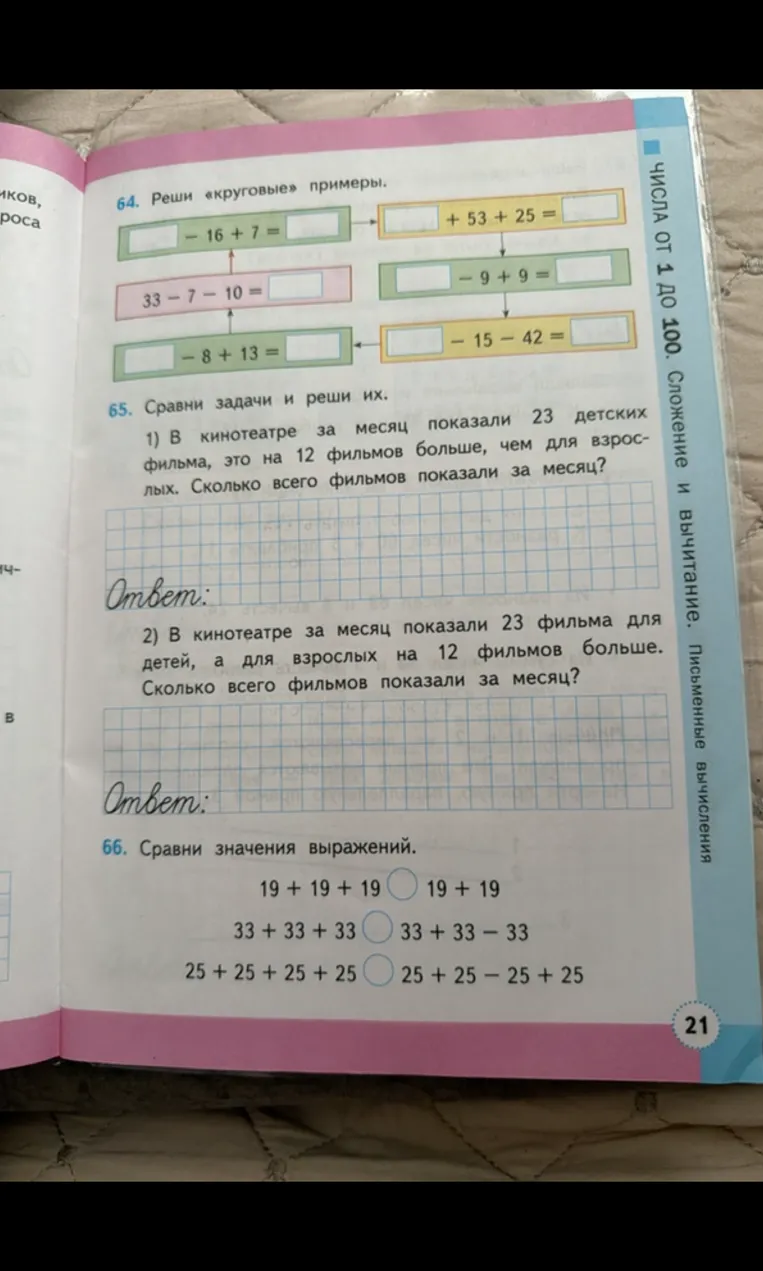 иков,
роса
ич-
в
64. Реши «круговые» примеры.
− 16 + 7 =
+ 53 + 25 =
33 − 7 − 10 =
− 9 + 9 =
− 8 + 13 =
− 15 − 42 =
65. Сравни задачи и реши их.
1) В кинотеатре за месяц показали 23 детских
фильма, это на 12 фильмов больше, чем для взрос-
лых. Сколько всего фильмов показали за месяц?
Ответ:
2) В кинотеатре за месяц показали 23 фильма для
детей, а для взрослых на 12 фильмов больше.
Сколько всего фильмов показали за месяц?
Ответ:
66. Сравни значения выражений.
19 + 19 + 19 19 + 19
33 + 33 + 33 33 + 33 − 33
25 + 25 + 25 + 25 25 + 25 − 25 + 25
21
ЧИСЛА ОТ 1 ДО 100. Сложение и вычитание. Письменные вычисления